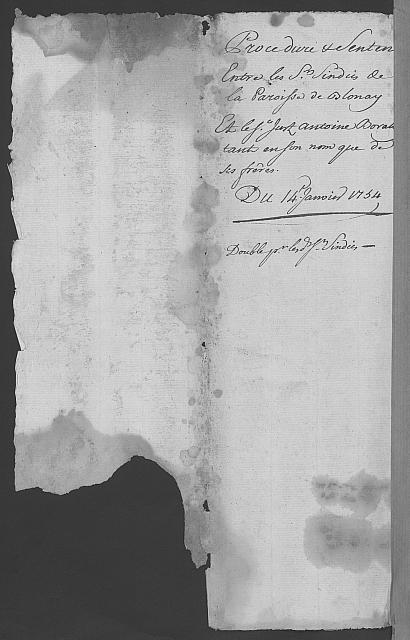 Procedure & Senten
Entre les Srs. Sindics de
la Paroisse de Blonay
Et le Sr. Just Antoine Dorat
tant en son nom que de
ses frères.
Du 14e. Janvier 1754
Double pr. les dts. Srs. Sindics —